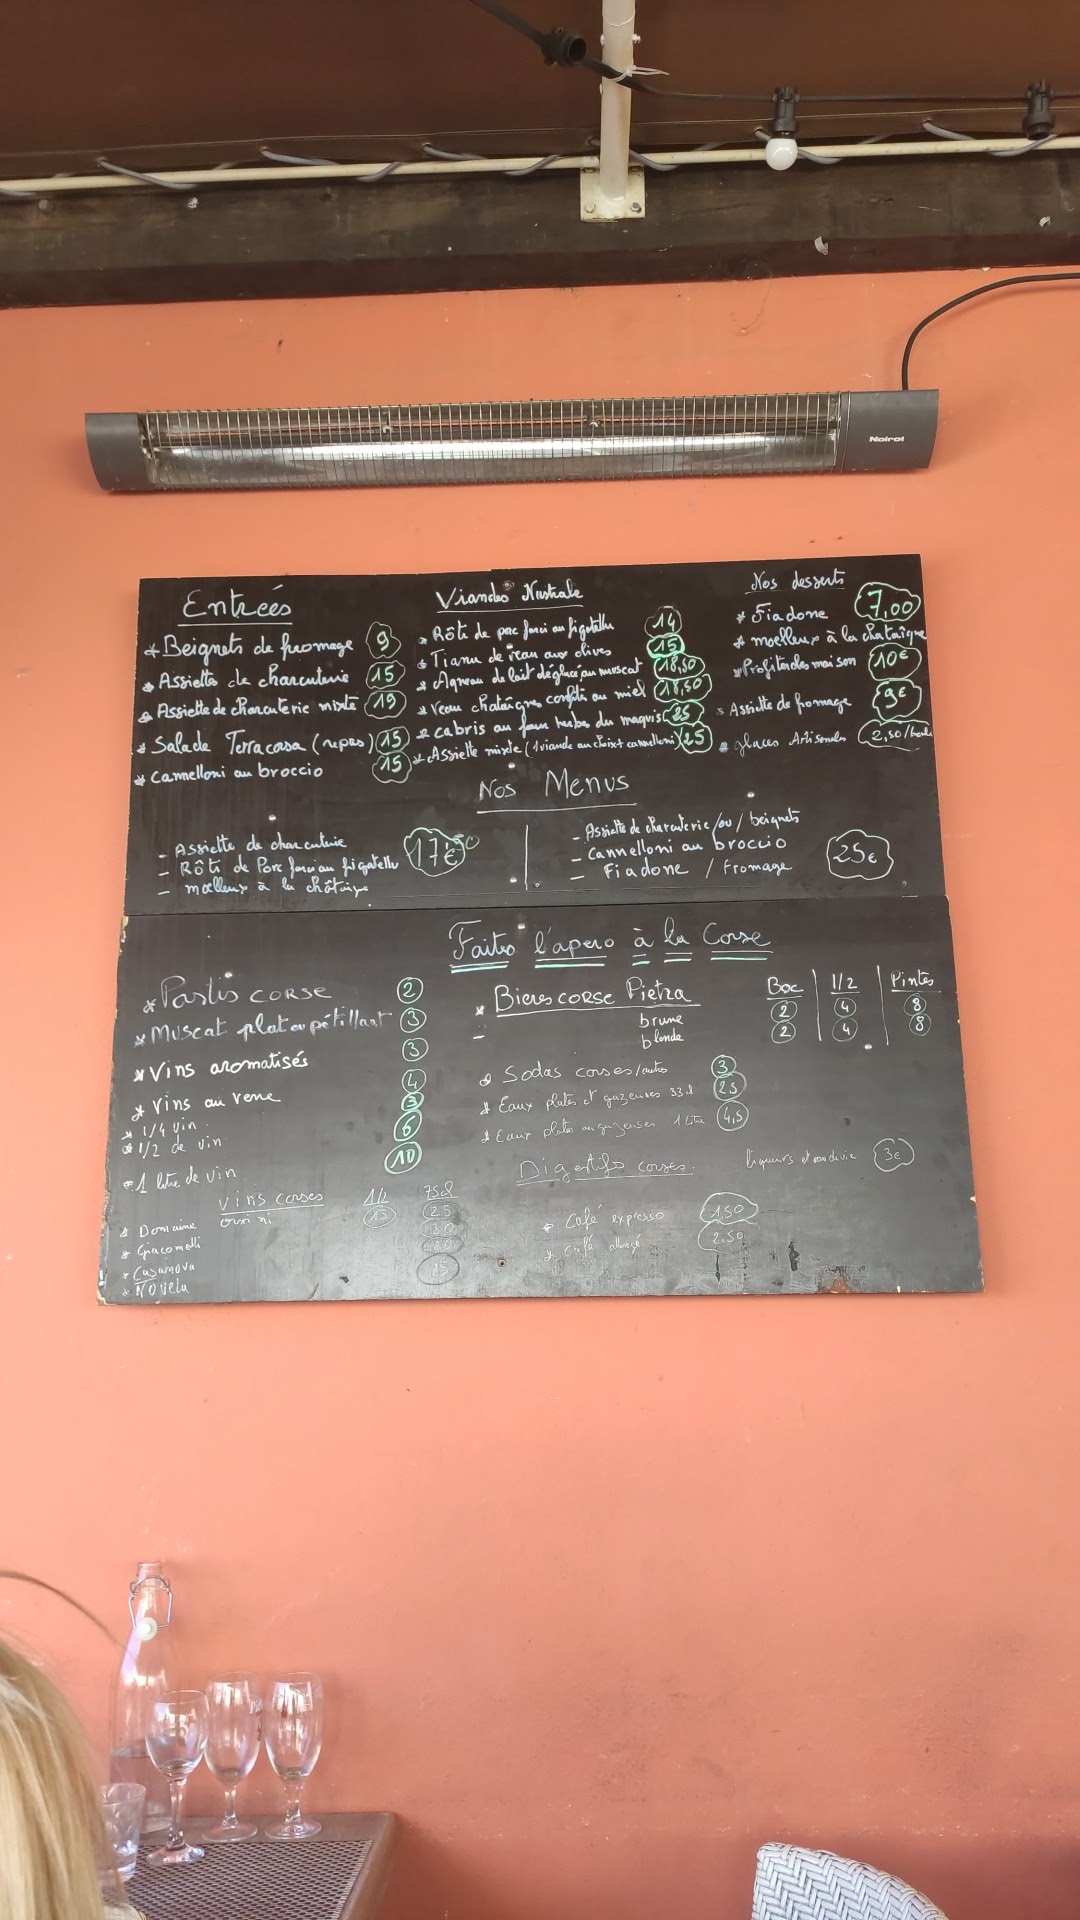 Noirot
Entreés
* Beignets de fromage 9
* Assiette de charcuterie 15
* Assiette de charcuterie mixte 19
* Salade Terracorsa (repas) 15
* Cannelloni au broccio 15
Viandes Nustrale
* Rôti de porc farci au figatellu 14
* Tianu de veau aux olives 15
* Agneau de lait déglacé au muscat 18,50
* Veau chataîgnes confite au miel 18,50
* cabris au four herbes du maquis 25
* Assiette mixte (1 viande au choix + cannelloni) 25
Nos desserts
* Fiadone 7,00
* moelleux à la chataîgne
* Profiteroles maison 10€
* Assiette de fromage 9€
* glaces Artisanales 2,50/boule
Nos Menus
- Assiette de charcuterie
- Rôti de Porc farci au figatellu
- moelleux à la châtaigne
17€50
- Assiette de charcuterie /ou/ beignets
- Cannelloni au broccio
- Fiadone / Fromage
25€
Faites l'apero à la Corse
* Pastis corse 2
* Muscat plat ou pétillant 3
* Vins aromatisés 3
* Vins au verre 4
* 1/4 vin 3
* 1/2 de vin 6
* 1 litre de vin 10
Vins corses 1/2 75cl
* Domaine orsini 15 25
* Giacometti 30
* Casanova
* Novela 25
* Bieres corse Pietra Boc 1/2 Pintes
brune 2 4 8
- blonde 2 4 8
* Sodas corses/autres 3
* Eaux plates et gazeuses 33cl 2,5
* Eaux plates ou gazeuses 1 Litre 4,5
Digestifs corses.
liqueurs et eau de vie 3€
* Café expresso 1,50
* Café allongé 2,50